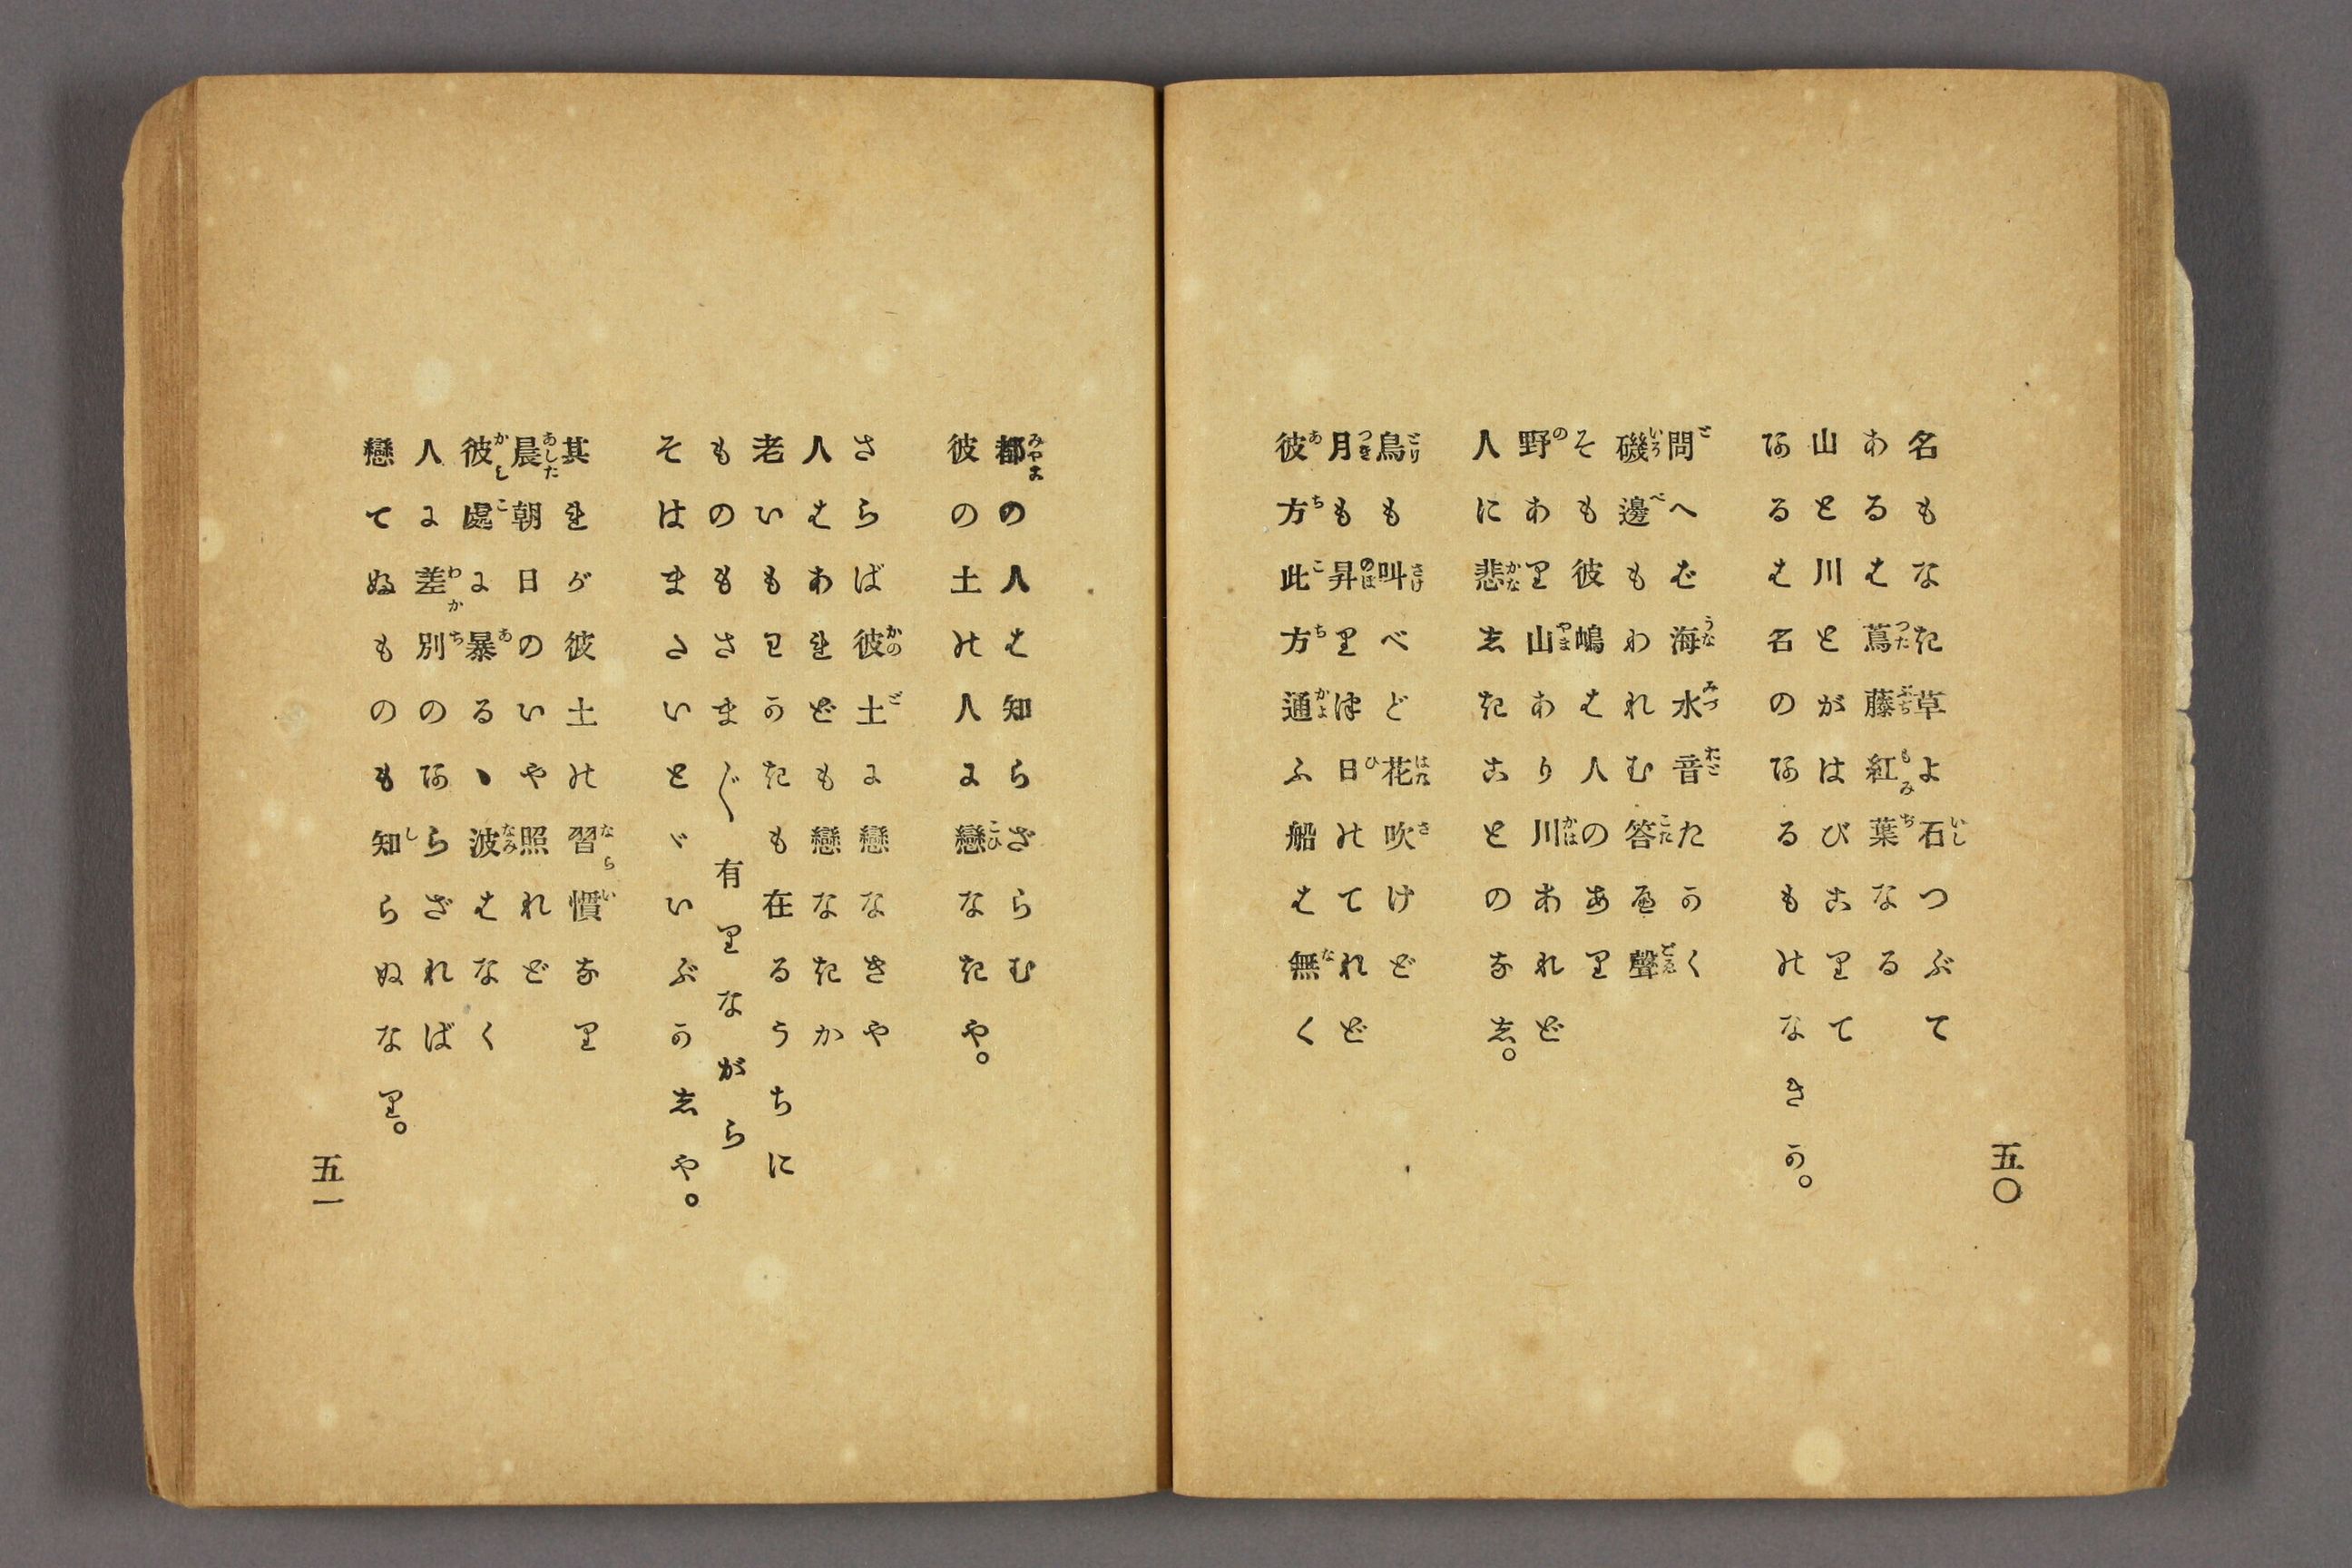 五〇
名もなき草よ石つぶて
あるは蔦藤紅葉なる
山と川とがはびこりて
あるは名のあるものなきか。
問へば海水音たかく
磯邊もわれむ答ゑ聲
そも彼嶋は人のあり
野あり山あり川あれど
人に悲しきことのなし。
鳥も叫べど花吹けど
月も昇りつ日のてれど
彼方此方通ふ船は無く
都の人は知らざらむ
彼の土の人に戀なきや。
さらば彼土に戀なきや
人はあれども戀なきか
老いもわかきも在るうちに
ものもさま〴〵有りながら
そはまたいとゞいぶかしや。
其れが彼土の習慣なり
晨朝日のいや照れど
彼處に暴るゝ波はなく
人に差別のあらざれば
戀てふものも知らぬなり。
五一